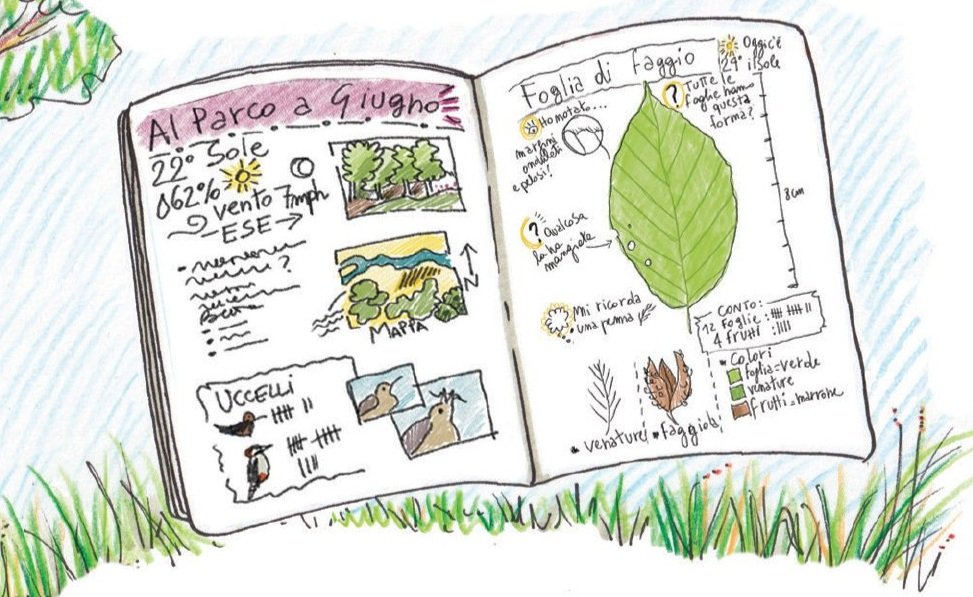 Al Parco a Giugno
22° Sole
62%
vento 7mph
ESE →
?
N
MAPPA
UCCELLI
Foglia di faggio
Oggi c'è
29° il sole
Ho notato...
margini
ondulati
e pelosi!
? Tutte le
foglie hanno
questa
forma?
8 cm
? Qualcosa
la ha
mangiata
Mi ricorda
una penna
CONTO:
12 foglie :
4 frutti :
• Colori
foglia=verde
venature
frutti=marrone
• venature
• faggiola